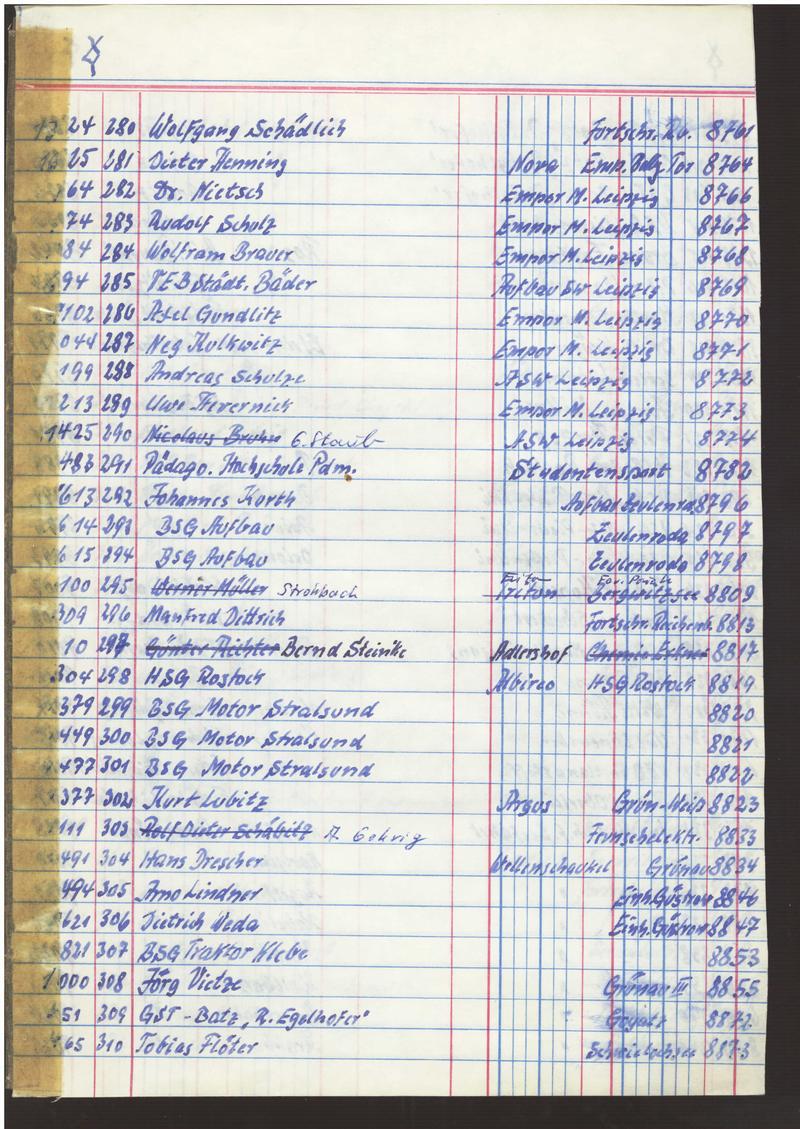 24 280 Wolfgang Schädlich Fortschr. 8761
25 281 Dieter Henning Nova Emp. Tor 8764
64 282 Dr. Nietsch Empor M. Leipzig 8766
74 283 Rudolf Schulz Empor M. Leipzig 8767
84 284 Wolfram Brauer Empor M. Leipzig 8768
94 285 VEB Städt. Bäder Aufbau SW Leipzig 8769
102 286 Axel Gundlitz Empor M. Leipzig 8770
044 287 Kulkwitz Empor M. Leipzig 8771
199 288 Andreas Schulze ASW Leipzig 8772
213 289 Uwe Empor M. Leipzig 8773
1425 290 Nicolaus Bruhn G. Staub ASW Leipzig 8774
483 291 Pädago. Hochschule Pdm. Studentensport 8782
613 292 Johannes Kurth Aufbau Zeulenroda 8796
614 293 BSG Aufbau Zeulenroda 8797
615 294 BSG Aufbau Zeulenroda 8798
100 295 Werner Müller Strohbach Triton Bergwitzsee 8809
309 296 Manfred Dittrich Fortschr. 8813
10 297 Günter Richter Bernd Steinke Adlershof Chemie Erkner 8817
304 298 HSG Rostock Albireo HSG Rostock 8819
379 299 BSG Motor Stralsund 8820
449 300 BSG Motor Stralsund 8821
497 301 BSG Motor Stralsund 8822
377 302 Kurt Lubitz Argus Grün-Weiß 8823
111 303 Rolf Dieter Schäbitz A. Gehrig Fernsehelektr. 8833
491 304 Hans Drescher Wellenschaukel Grünau 8834
494 305 Arno Lindner Einh. Güstrow 8846
621 306 Dietrich Weda Einh. Güstrow 8847
821 307 BSG Traktor Klebe 8853
1000 308 Jörg Vietze Grünau III 8855
51 309 GST - Batz „R. Egelhofer" Goyatz 8872
65 310 Tobias Flöter Schwielochsee 8873